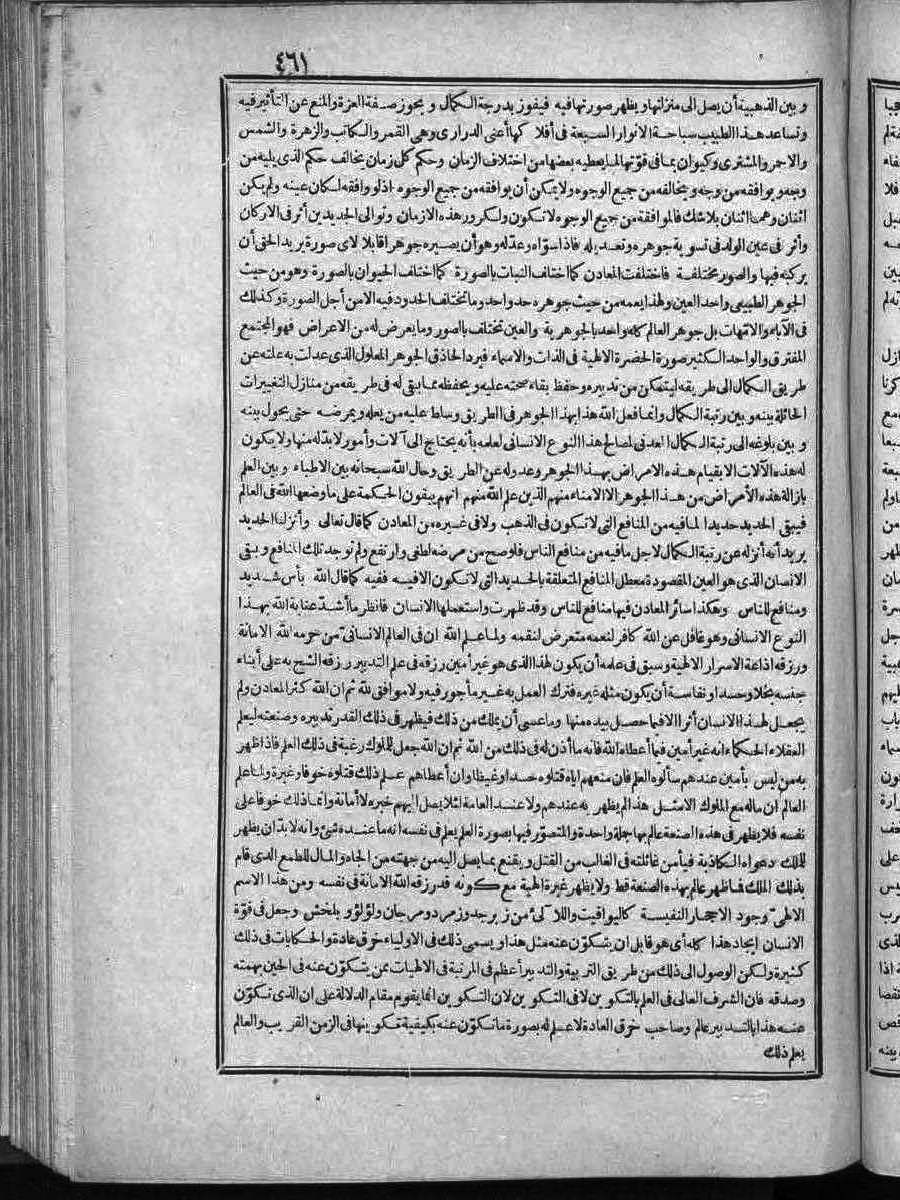 ٤٦١
وبين الذهبية أن يصل الى منزلتها ويظهر صورتها فيه فيفوز بدرجة الكمال ويحوز صفة العزة والمنع عن التأثير فيه
وتساعد هذا الطبيب سباحة الانوار السبعة فى أفلاكها أعنى الدرارى وهى القمر والكاتب والزهرة والشمس
والاحمر والمشترى وكيوان بما فى قوتها لما يعطيه بعضها من اختلاف الزمان وحكم كل زمان يخالف حكم الذى يليه من
وجه ويوافقه من وجه ويخالفه من جميع الوجوه ولا يتمكن أن يوافقه من جميع الوجوه اذ لو وافقه لكان عينه ولم يكن
اثنان وهما اثنان بلا شك فالموافقة من جميع الوجوه لا تكون ولمكرور هذه الازمان وتوالى الجديدين أثر فى الاركان
وأثر فى عين الولد فى تسوية جوهره وتعديله فاذا سواه وعدله وهو أن يصيره جوهرا قابلا لاى صورة يريد الحق أن
يركبه فيها والصور مختلفة فاختلفت المعادن كما اختلف النبات بالصورة كما اختلف الحيوان بالصورة وهو من حيث
الجوهر الطبيعى واحد العين ولهذا يعمه من حيث جوهره حد واحد وما تختلف الحدود فيه الا من أجل الصورة وكذلك
فى الآباء والامهات بل جوهر العالم كله واحد بالجوهرية والعين تختلف بالصور وما يعرض له من الاعراض فهو المجتمع
المفترق والواحد الكثير صورة الحضرة الالهية فى الذات والاسماء فيرد الحاذق الجوهر المعلول الذى عدلت به علته عن
طريق الكمال الى طريقه ليتمكن من تدبيره وحفظ بقاء صحته عليه ويحفظه مما بقى له فى طريقه من منازل التغييرات
الحائلة بينه وبين رتبة الكمال وانما فعل الله هذا بهذا الجوهر فى الطريق وسلط عليه من يعله ويمرضه حتى يحول بينه
وبين بلوغه الى رتبة الكمال المعدنى لمصالح هذا النوع الانسانى لعلمه بأنه يحتاج الى آلات وأمور لا بد له منها ولا يكون
له هذه الآلات الا بقيام هذه الامراض بهذا الجوهر وعدوله عن الطريق وحال الله سبحانه بين الاطباء وبين العلم
بازالة هذه الأمراض من هذا الجوهر الا الامناء منهم الذين علم الله منهم انهم يبقون الحكمة على ما وضعها الله فى العالم
فيبقى الحديد حديدا لما فيه من المنافع التى لا تكون فى الذهب ولا فى غيره من المعادن كما قال تعالى وأنزلنا الحديد
يريد أنه أنزله عن رتبة الكمال لاجل ما فيه من منافع الناس فلو صح من مرضه لطغى وارتفع ولم توجد تلك المنافع ويبقى
الانسان الذى هو العين المقصودة معطل المنافع المتعلقة بالحديد التى لا تكون الا فيه ففيه كما قال الله بأس شديد
ومنافع للناس وهكذا سائر المعادن فيها منافع للناس وقد ظهرت واستعملها الانسان فانظر ما أشد عناية الله بهذا
النوع الانسانى وهو غافل عن الله كافر لنعمه متعرض لنقمه ولما علم الله ان فى العالم الانسانى من حرمه الله الامانة
ورزقه اذاعة الاسرار الالهية وسبق فى علمه أن يكون لهذا الذى هو غير أمين رزقه فى علم التدبير رزقه الشح به على أبناء
جنسه بخلا وحسدا ونفاسة أن يكون مثله غيره فترك العمل به غير مأجور فيه ولا موافق لله ثم ان الله كثر المعادن ولم
يجعل لهذا الانسان أثرا الا فيما حصل بيده منها وما عسى أن يملك من ذلك فيظهر فى ذلك القدر تدبيره وصنعته ليعلم
العقلاء الحكماء انه غير أمين فيما أعطاه الله فانه ما أذن له فى ذلك من الله ثم ان الله جعل للملوك رغبة فى ذلك العلم فاذا ظهر
به من ليس بأمين عندهم سألوه العلم فان منعهم اياه قتلوه حسدا وغيظا وان أعطاهم علم ذلك قتلوه خوفا وغيرة ولما علم
العالم ان ماله مع الملوك الا مثل هذا لم يظهر به عندهم ولا عند العامة لئلا يصل اليهم خبره لا أمانة وانما ذلك خوفا على
نفسه فلا يظهر فى هذه الصنعة عالم بها جلة واحدة والمتصور فيها بصورة العلم يعلم فى نفسه انه ما عنده شئ وانه لا بد ان يظهر
للملك دعواه الكاذبة فيأمن غائلته فى الغالب من القتل ويقنع بما يصل اليه من جهته من الجاه والمال للطمع الذى قام
بذلك الملك فما ظهر عالم بهذه الصنعة قط ولا يظهر غيرة الهية مع كونه قد رزقه الله الامانة فى نفسه ومن هذا الاسم
الالهى وجود الاحجار النفيسة كاليواقيت واللآلئ من زبرجد وزمرد ومرجان ولؤلؤ وبلخش وجعل فى قوة
الانسان ايجاد هذا كله أى هو قابل ان يتكون عنه مثل هذا ويسمى ذلك فى الاولياء خرق عادة والحكايات فى ذلك
كثيرة ولكن الوصول الى ذلك من طريق التربية والتدبير أعظم فى المرتبة فى الالهيات ممن يتكون عنه فى الحين بهمته
وصدقه فان الشرف العالى فى العلم بالتكوين لا فى التكوين لان التكوين انما يقوم مقام الدلالة على ان الذى تكون
عنه هذا بالتدبير عالم وصاحب خرق العادة لا علم له بصورة ما تكون عنه بكيفية تكوينها فى الزمن القريب والعالم
يعلم ذلك